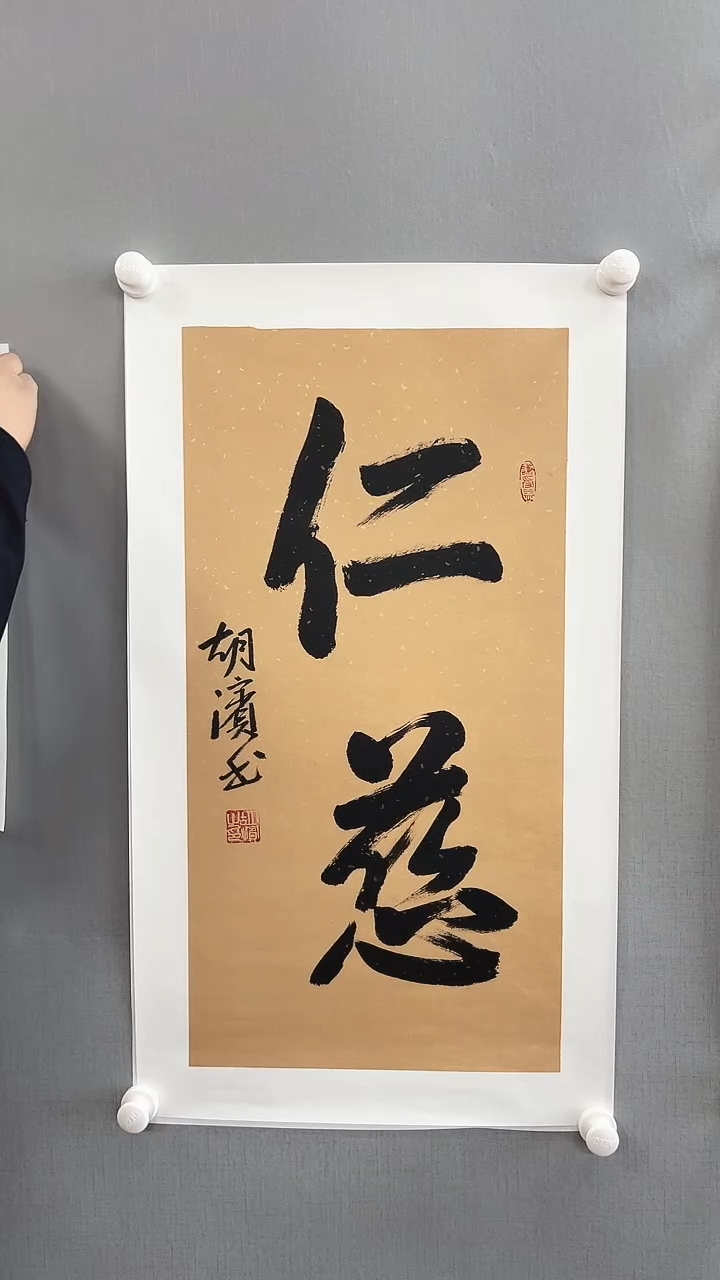 仁慈
胡濱书